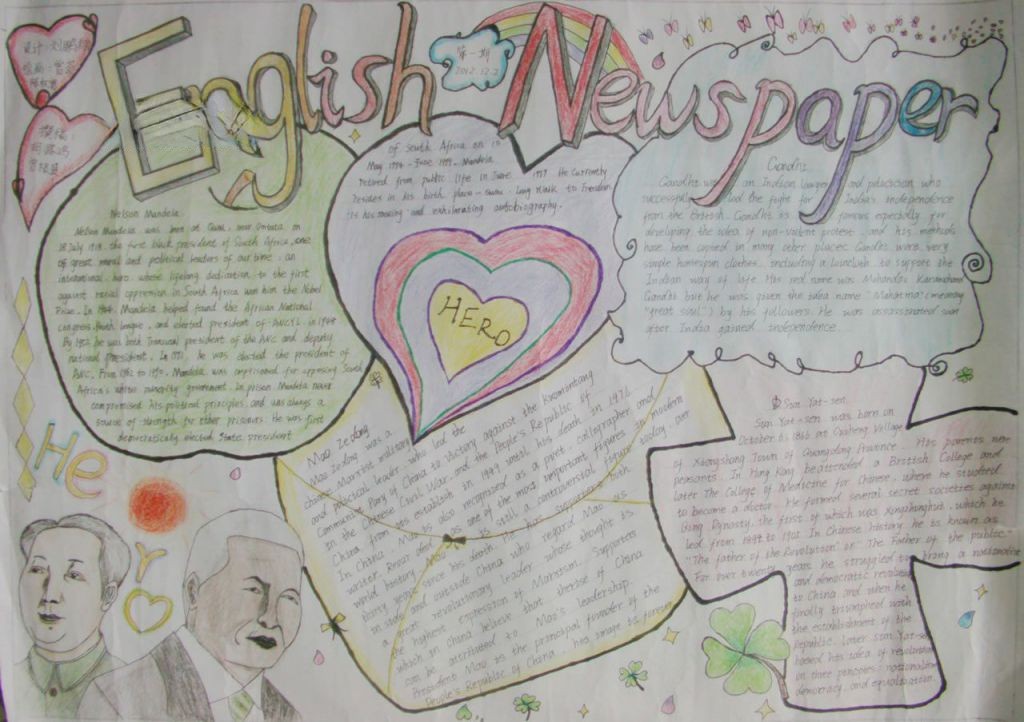 English Newspaper
第一期
2012.12.2
Nelson Mandela
Nelson Mandela was born at Qunu, near Umtata on
18 July 1918. the first black president of South Africa, one
of great moral and political leaders of our time, an
international hero whose lifelong dedication to the
against racial oppression in South Africa won him the Nobel
Prize. In 1944, Mandela helped found the African National
Congress Youth League, and elected president of in
By 1952, he was both president of the ANC and deputy
national president. In he was elected the president of
ANC. From 1962 to 1990. Mandela was imprisoned for opposing South
Africa's white minority government. In prison Mandela never
compromised his political principles, and was always a
source of strength for other prisoners. He was first
democratically elected State president
of South Africa on 10
May 1994 - June 1999. Mandela
retired from public life in June He Currently
resides in his birth place - Long Walk to Freedom
is his moving and exhilarating autobiography.
HERO
Gandhi
Gandhi was an Indian lawyer and politician who
successfully led the fight for India's independence
from the British. Gandhi is famous especially for
developing the idea of non-violent protest, and his methods
have been copied in many other places. Gandhi wore very
simple homespun clothes, including a loincloth to support the
Indian way of life. His real name was Mohandas Karamchand
Gandhi but he was given the name "Mahatma" (meaning
"great soul") by his followers. He was assassinated soon
after India gained independence.
Mao Zedong
Mao Zedong was a
Marxist military
and political leader, who led the
Communist Party of China to victory against the Kuomintang
in the Chinese Civil War, and the People's Republic of
China from its establish in 1949 until his death in 1976
In China, Mao is also recognized as a poet, calligrapher and
writer. Regarded as one of the most important figures in modern
world history, Mao is still a controversial figure today, over
thirty years since his death. He has supporters both
in side and outside China who regard Mao as
a great revolutionary leader whose thought is
the highest expression of Marxism. Supporters
which in China believe that therise of China
can be attributed to Mao's leadership.
President Mao is the principal founder of the
People's Republic of China, his image is forever
Sun Yat-sen
Sun Yat-sen was born on
October 6, 1866 at Cuiheng Village
of Xiangshang Town of Guangdong Province. His parents were
peasants. In Hong Kong he attended a British College and
later The College of Medicine for Chinese, where he studied
to become a doctor. He formed several secret societies against
Qing Dynasty, the first of which was Xingzhonghui, which he
led from In Chinese history he is known as
"The father of the Revolution" or "The Father of the public."
For over twenty years he struggled to bring a nationalist
and democratic revolution
to China and when he
finally triumphed with
the establishment of the
republic, later Sun Yat-sen
based his idea of revolution
on three principles: nationalism
democracy, and equalization.
Hero